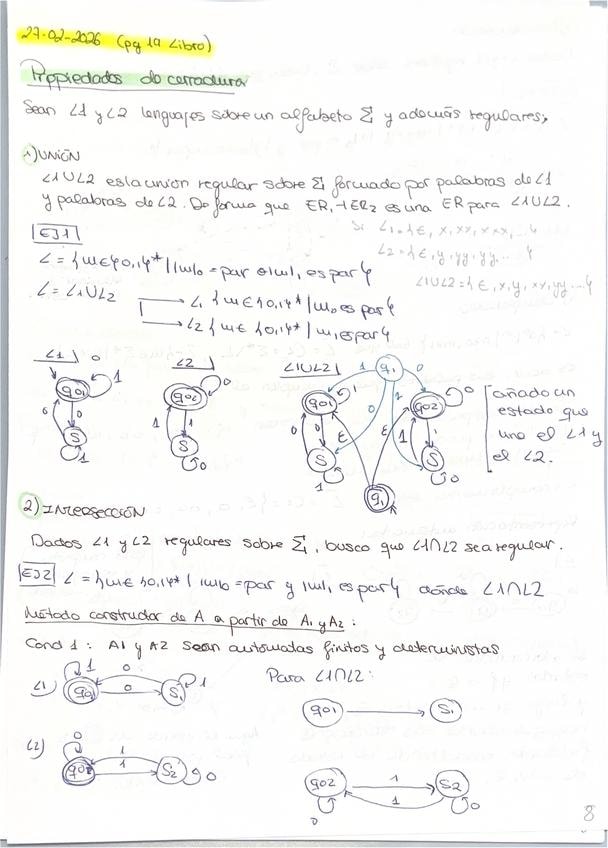 27-02-2026 (pg 19 Libro)
Propiedades de cerradura
Sean L1 y L2 lenguajes sobre un alfabeto Σ y además regulares,
1) UNIÓN
L1UL2 es la unión regular sobre Σ formado por palabras de L1
y palabras de L2. De forma que ER1+ER2 es una ER para L1UL2.
Si L1={ε, x, xx, xxx, ...}
L2={ε, y, yy, yyy, ...}
L1UL2={ε, x, y, xx, yy ...}
EJ1
L={w∈{0,1}* | |w|0=par o |w|1 es par}
L = L1UL2
L1 {w∈{0,1}* | w0 es par}
L2 {w∈{0,1}* | w1 es par}
L1 0
q01 1
0 0
S
1
L2
q02 0
1 1
S
0
L1UL2 q1
1 0
q01 1 q02 0
0 0 0 1 1
ε ε
S S
1 0
q1
añado un
estado que
une el L1 y
el L2.
2) INTERSECCIÓN
Dados L1 y L2 regulares sobre Σ, busco que L1∩L2 sea regular.
EJ2 L={w∈{0,1}* | |w|0=par y |w|1 es par} dónde L1∩L2
Método constructor de A a partir de A1 y A2:
Cond 1: A1 y A2 sean autómatas finitos y deterministas
L1) 1 q01 0 0 S1 1
Para L1∩L2:
q01 S1
L2) 0 q02 1 1 S2 0
q02 1 1 S2 0
0
8